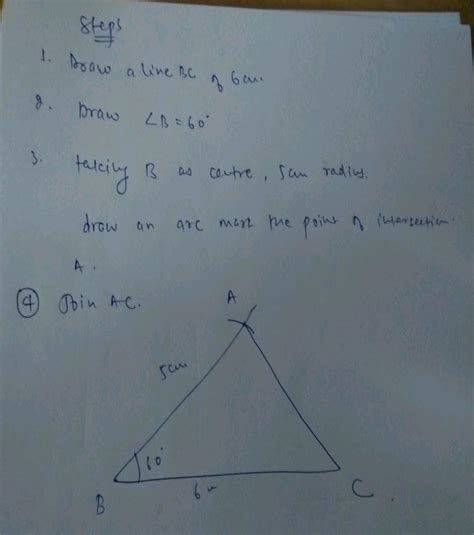 Steps
1. Draw a line BC of 6cm.
2. Draw ∠B = 60°
3. taking B as centre, 5cm radius.
draw an arc mark the point of intersection.
A.
④ Join AC.
A
5cm
60°
B
6
C.